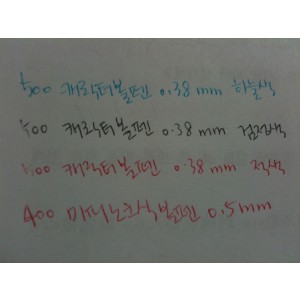 500 캐릭터볼펜 0.38mm 하늘색
500 캐릭터볼펜 0.38mm 검정색
500 캐릭터볼펜 0.38mm 적색
400 미피노크식볼펜 0.5mm